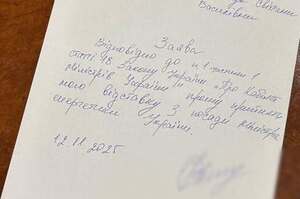 Світлані
Василівни
Заява
Відповідно до ч.1 
статті 18 Закону України "Про Кабінет
Міністрів України" прошу прийняти
мою відставку з посади Міністра
енергетики України.
12.11.2025